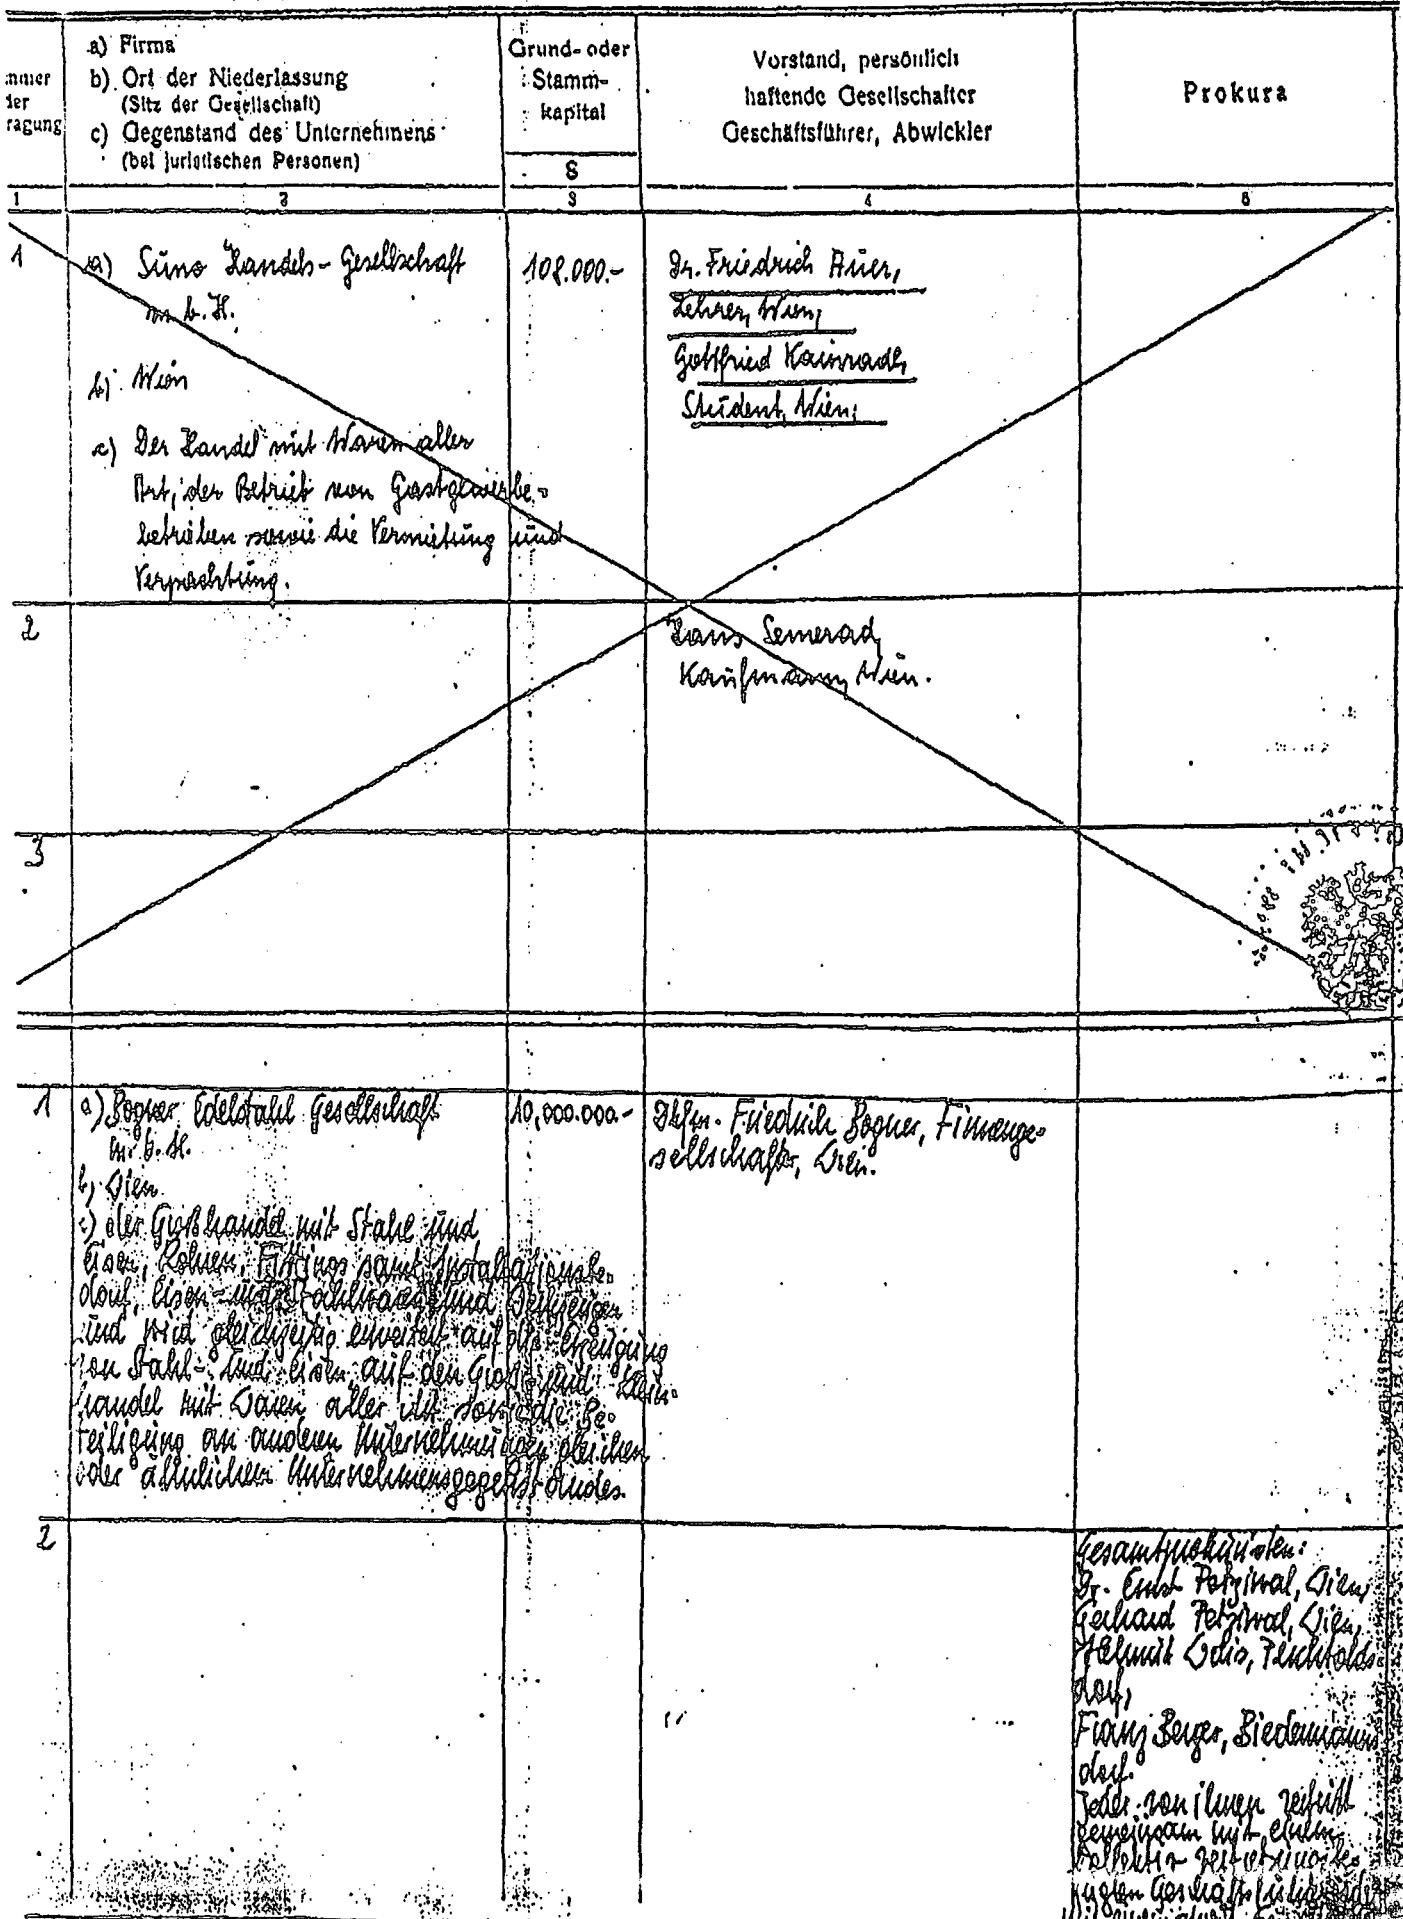 a) Firma
b) Ort der Niederlassung
(Sitz der Gesellschaft)
c) Gegenstand des Unternehmens
(bei juristischen Personen)
Grund- oder
Stamm-
kapital
S
Vorstand, persönlich
haftende Gesellschafter
Geschäftsführer, Abwickler
Prokura
1 2 3 4 5
1
a) Süno Handels-Gesellschaft
m. b. H.
b) Wien
c) Der Handel mit Waren aller
Art, der Betrieb von Gastgewerbe-
betrieben sowie die Vermietung und
Verpachtung.
108.000.-
Dr. Friedrich Auer,
Lehrer, Wien,
Gottfried
Student, Wien;
2
Hans Semerad,
Kaufmann, Wien.
3
1
a) Bogner Edelstahl Gesellschaft
m. b. H.
b) Wien
c) der Großhandel mit Stahl und
Eisen, Rohren, Fittings samt Installationsbe-
darf, Eisen- und Stahlwaren und Werkzeugen
und wird gleichzeitig erweitert auf die Erzeugung
von Stahl- und Eisen, auf den Groß- und Klein-
handel mit Waren aller Art sowie die Be-
teiligung an anderen Unternehmungen gleichen
oder ähnlichen Unternehmensgegenstandes.
10,000.000.-
Dkfm. Friedrich Bogner,
sellschafter, Wien.
2
Gesamtprokuristen:
Dr. Ernst Petziwal, Wien,
Gerhard Petziwal, Wien,
Helmut Perchtolds-
dorf,
Franz Berger, Biedermanns
dorf.
Jeder von ihnen vertritt
gemeinsam mit einem
kollektiv vertretungsbe-
fugten Geschäftsführer